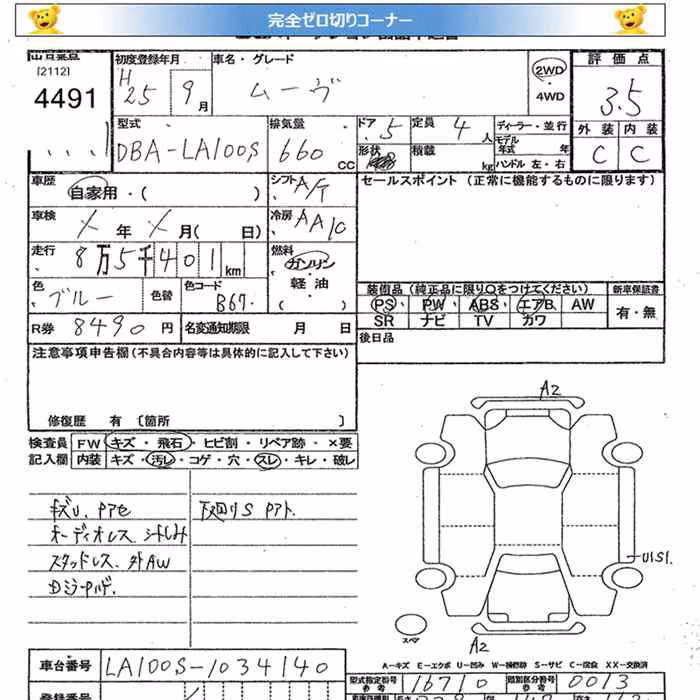 完全ゼロ切りコーナー
[2112]
4491
初度登録年月
H 25 9月
車名・グレード
ムーヴ
2WD
4WD
評価点
3.5
外装 内装
C C
型式
DBA-LA100S
排気量
660 CC
ドア 5
形状
定員 4人
積載 kg
ディーラー・並行
モデル年式 年
ハンドル 左・右
車歴
自家用・( )
シフト A/T
セールスポイント (正常に機能するものに限ります)
車検
メ 年 メ 月( 日)
冷房 AAC
走行
8万5千401km
燃料
ガソリン
軽油
( )
色
ブルー
色替
色コード
B67.
装備品(純正品に限り○をつけてください)
PS・PW・ABS・エアB・AW
SR ナビ TV カワ
新車保証書
有・無
R券 8490円
名変通知期限 月 日
後日品
注意事項申告欄(不具合内容等は具体的に記入して下さい)
修復歴 有 〔箇所 〕
検査員
記入欄
FW キズ・飛石・ヒビ割・リペア跡・×要
内装 キズ・汚レ・コゲ・穴・スレ・キレ・破レ
キズU、Pアセ
下廻りS Pアト.
オーディオレス シートしみ
スタッドレス. 外AW
A2
U1S1.
スペア
A2
車台番号
LA100S-1034140
A-キズ E-エクボ U-凹み W-補修跡 S-サビ C-腐食 XX-交換済
型式指定番号
参考
16710
類別区分番号
参考
0013
登録番号